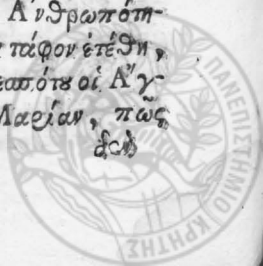 Ἀνθρωπότη-
τάφον ἐτέθη,
οἱ Ἄγ-
Μαρίαν, πῶς
ΠΑΝΕΠΙΣΤΗΜΙΟ ΚΡΗΤΗΣ